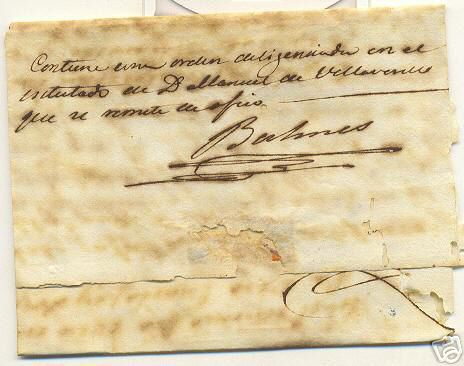 Contiene una orden diligenciada en el
estutado de Dⁿ Manuel de Villaverde
que se remite de ofio
Balmes